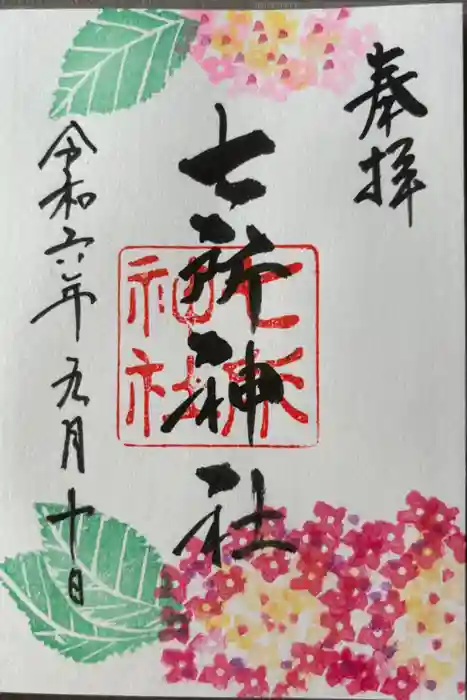 奉拝
七所神社
七所
神社
令和六年九月十日